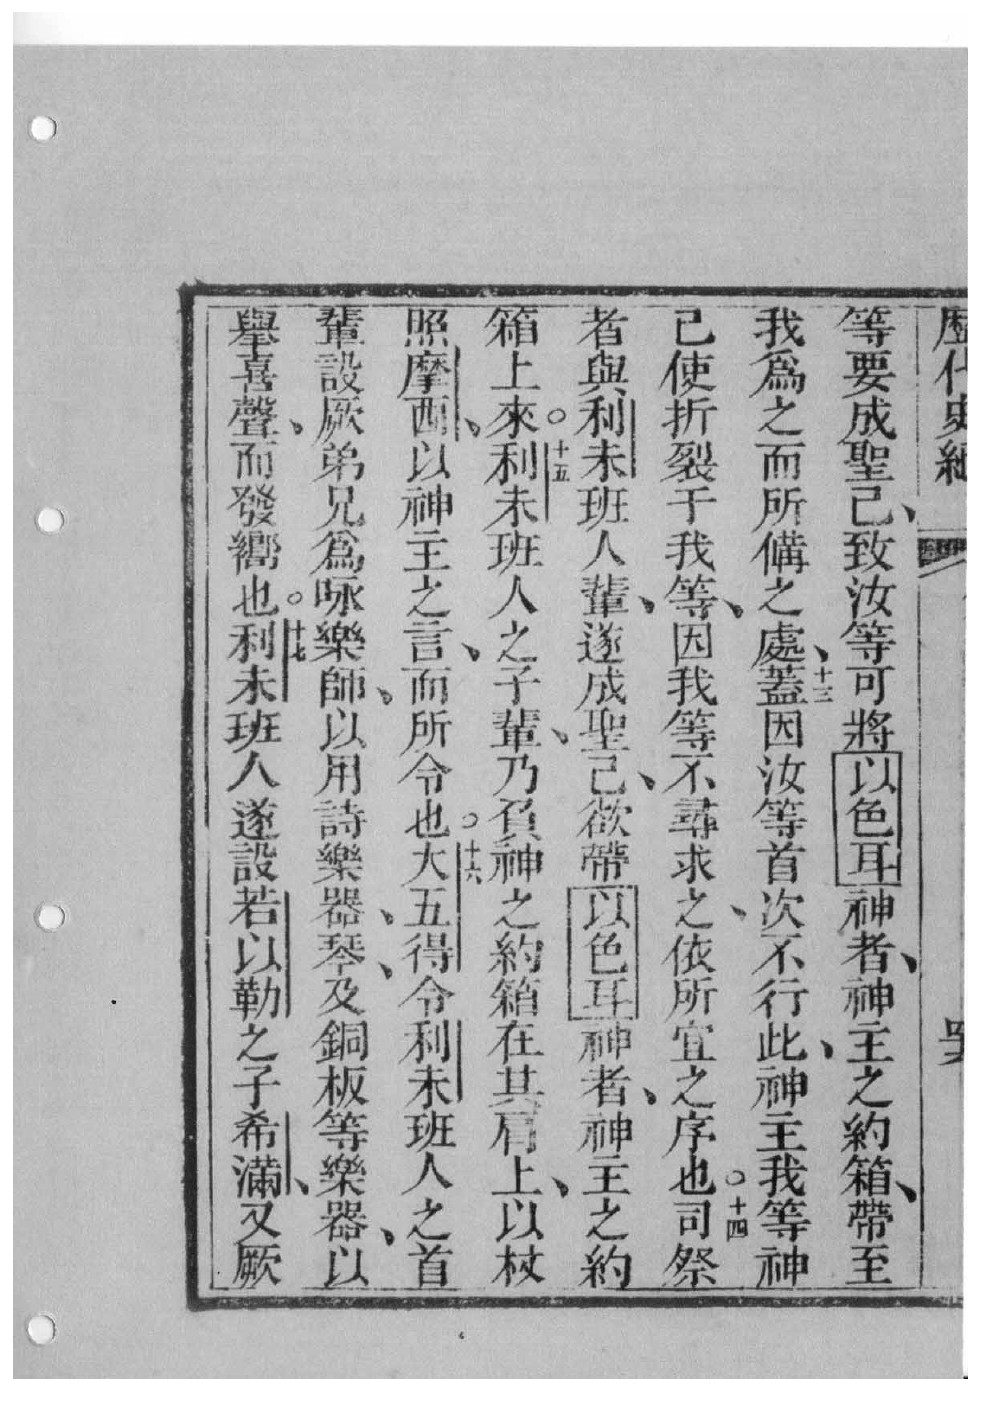 歷代史紀
等要成聖己、致汝等可將以色耳神者、神主之約箱、帶至
我爲之而所備之處、十三蓋因汝等首次不行此、神主我等神
己使折裂于我等、因我等不尋求之、依所宜之序也。十四司祭
者與利未班人輩、遂成聖己、欲帶以色耳神者、神主之約
箱上來。十五利未班人之子輩、乃負神之約箱在其肩上、以杖
照摩西、以神主之言、而所令也。十六大五得令利未班人之首
輩設厥弟兄爲咏樂師、以用詩樂器、琴、及銅板等樂器、以
舉喜聲、而發嚮也。十七利未班人遂設若以勒之子希滿、又厥